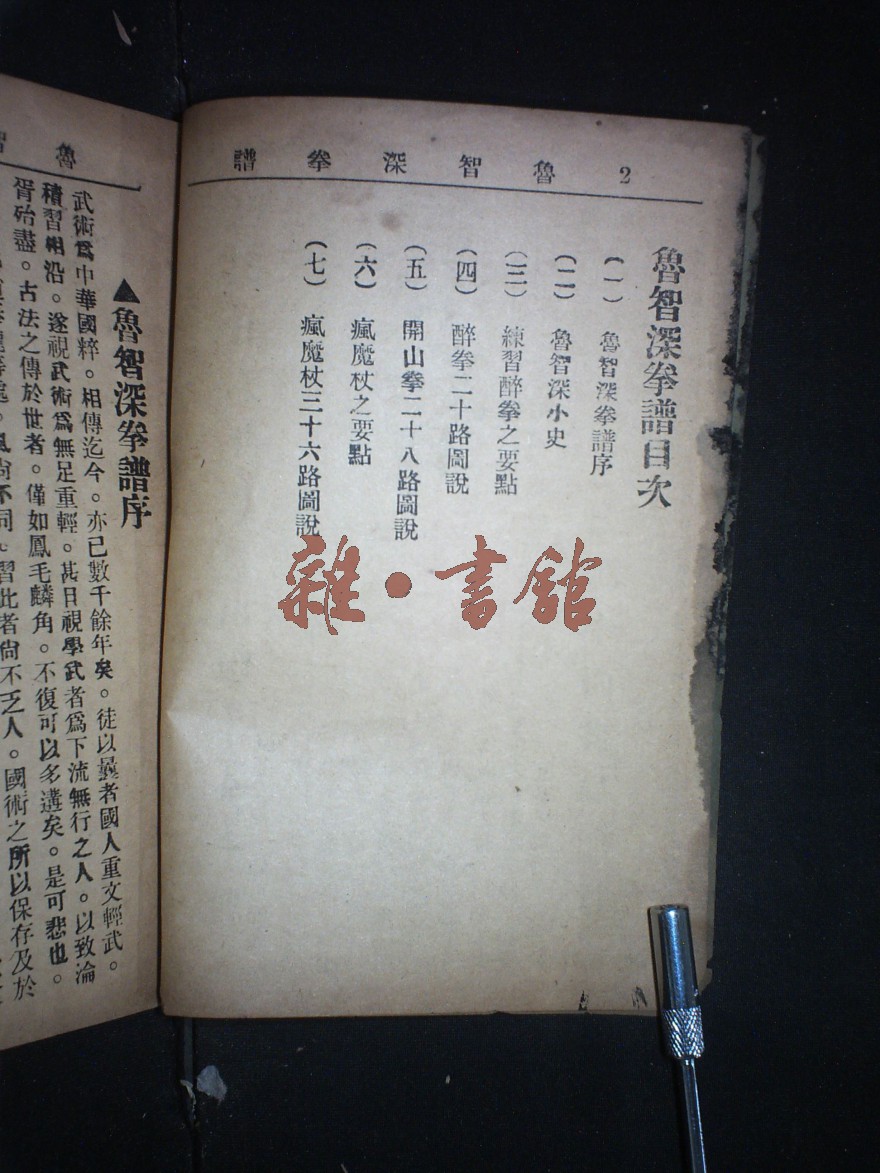 2 魯智深拳譜
魯智深拳譜目次
(一) 魯智深拳譜序
(二) 魯智深小史
(三) 練習醉拳之要點
(四) 醉拳二十路圖說
(五) 開山拳二十八路圖說
(六) 瘋魔杖之要點
(七) 瘋魔杖三十六路圖說
雜·書館
魯智
▲魯智深拳譜序
武術爲中華國粹。相傳迄今。亦已數千餘年矣。徒以曩者國人重文輕武。
積習相沿。遂視武術爲無足重輕。甚且視學武者爲下流無行之人。以致淪
胥殆盡。古法之傳於世者。僅如鳳毛麟角。不復可以多遘矣。是可悲也。
尚不同。習此者尙不乏人。國術之所以保存及於